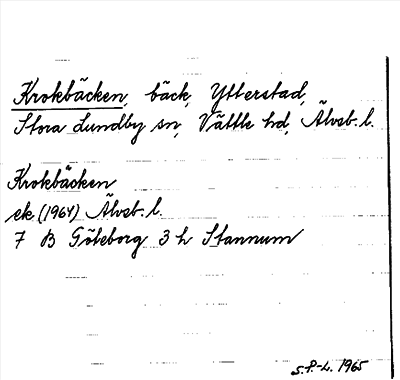 Krokbäcken, bäck, Ytterstad,
Stora Lundby sn, Vättle hd, Älvsb. l.
Krokbäcken
ek (1964) Älvsb. l.
7 B Göteborg 3 h Stannum
S.P-L. 1965